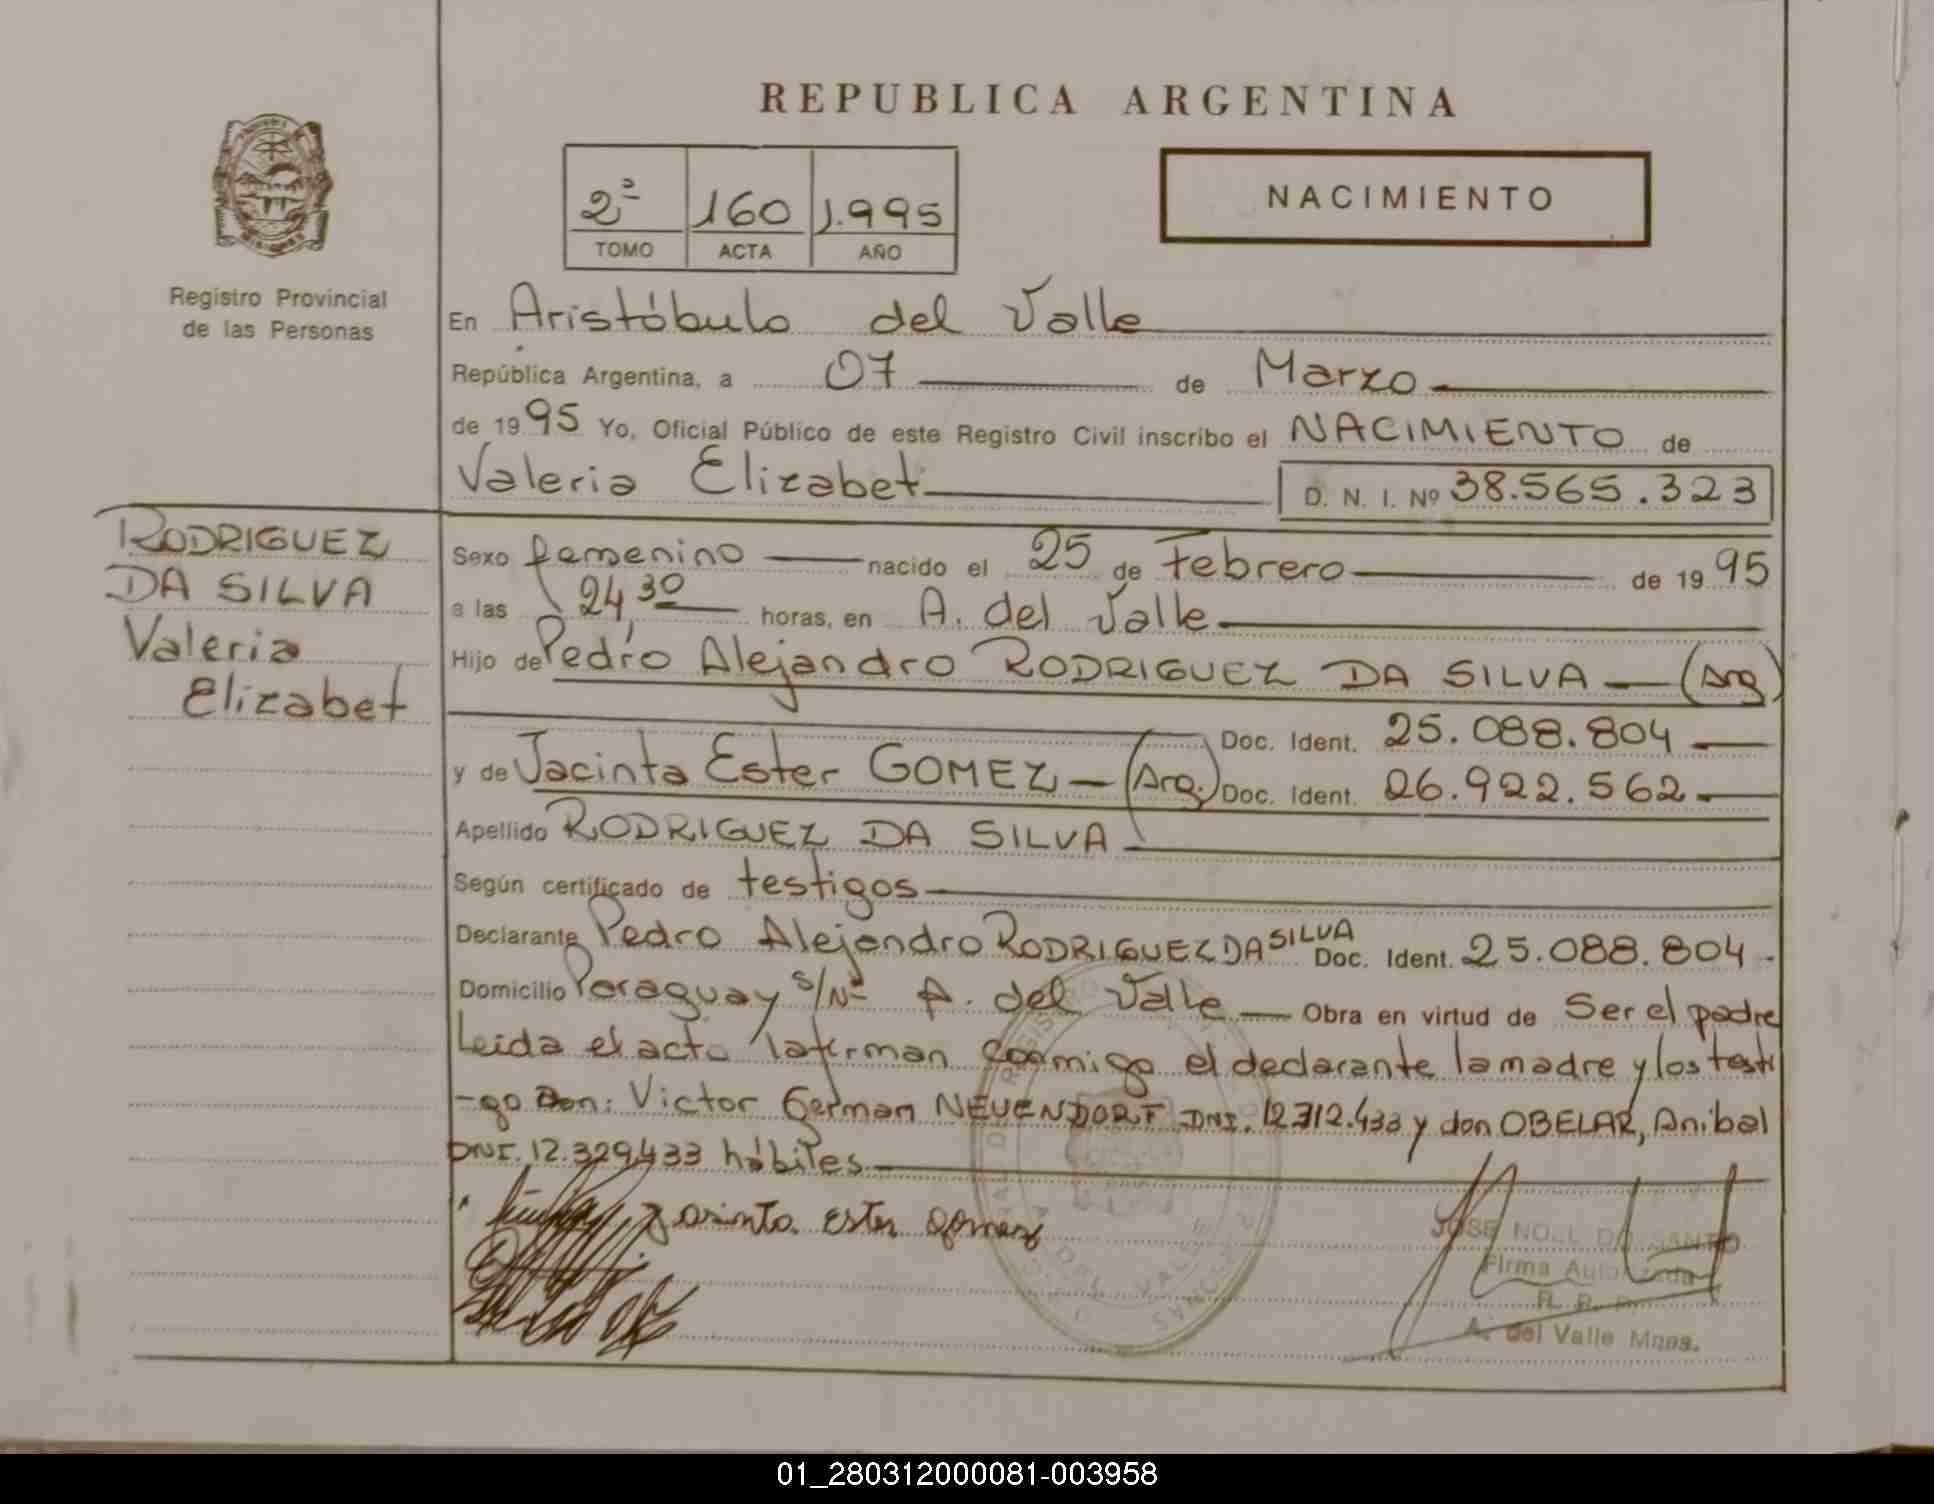 REPUBLICA ARGENTINA
2º 160 1.995
TOMO ACTA AÑO
NACIMIENTO
Registro Provincial
de las Personas
En Aristóbulo del Valle
República Argentina, a 07 de Marzo
de 1995 Yo, Oficial Público de este Registro Civil inscribo el NACIMIENTO de
Valeria Elizabet D. N. I. Nº 38.565.323
RODRIGUEZ
DA SILVA
Valeria
Elizabet
Sexo femenino nacido el 25 de Febrero de 1995
a las 24,30 horas, en A. del Valle
Hijo de Pedro Alejandro RODRIGUEZ DA SILVA — (Arg)
Doc. Ident. 25.088.804
y de Jacinta Ester GOMEZ — (Arg.) Doc. Ident. 26.922.562
Apellido RODRIGUEZ DA SILVA
Según certificado de testigos
Declarante Pedro Alejandro RODRIGUEZ DA SILVA Doc. Ident. 25.088.804
Domicilio Paraguay s/Nº A. del Valle — Obra en virtud de Ser el padre
Leida el acta la firman conmigo el declarante la madre y los testi
-go Don: Victor German NEUENDORF DNI. 12.312.433 y don OBELAR, Anibal
DNI. 12.329.433 hábiles
Jasinta Ester Gomez
JOSE NOEL DO SANTO
Firma Autorizada
R. R. P.
A. del Valle Mnes.
01_280312000081-003958